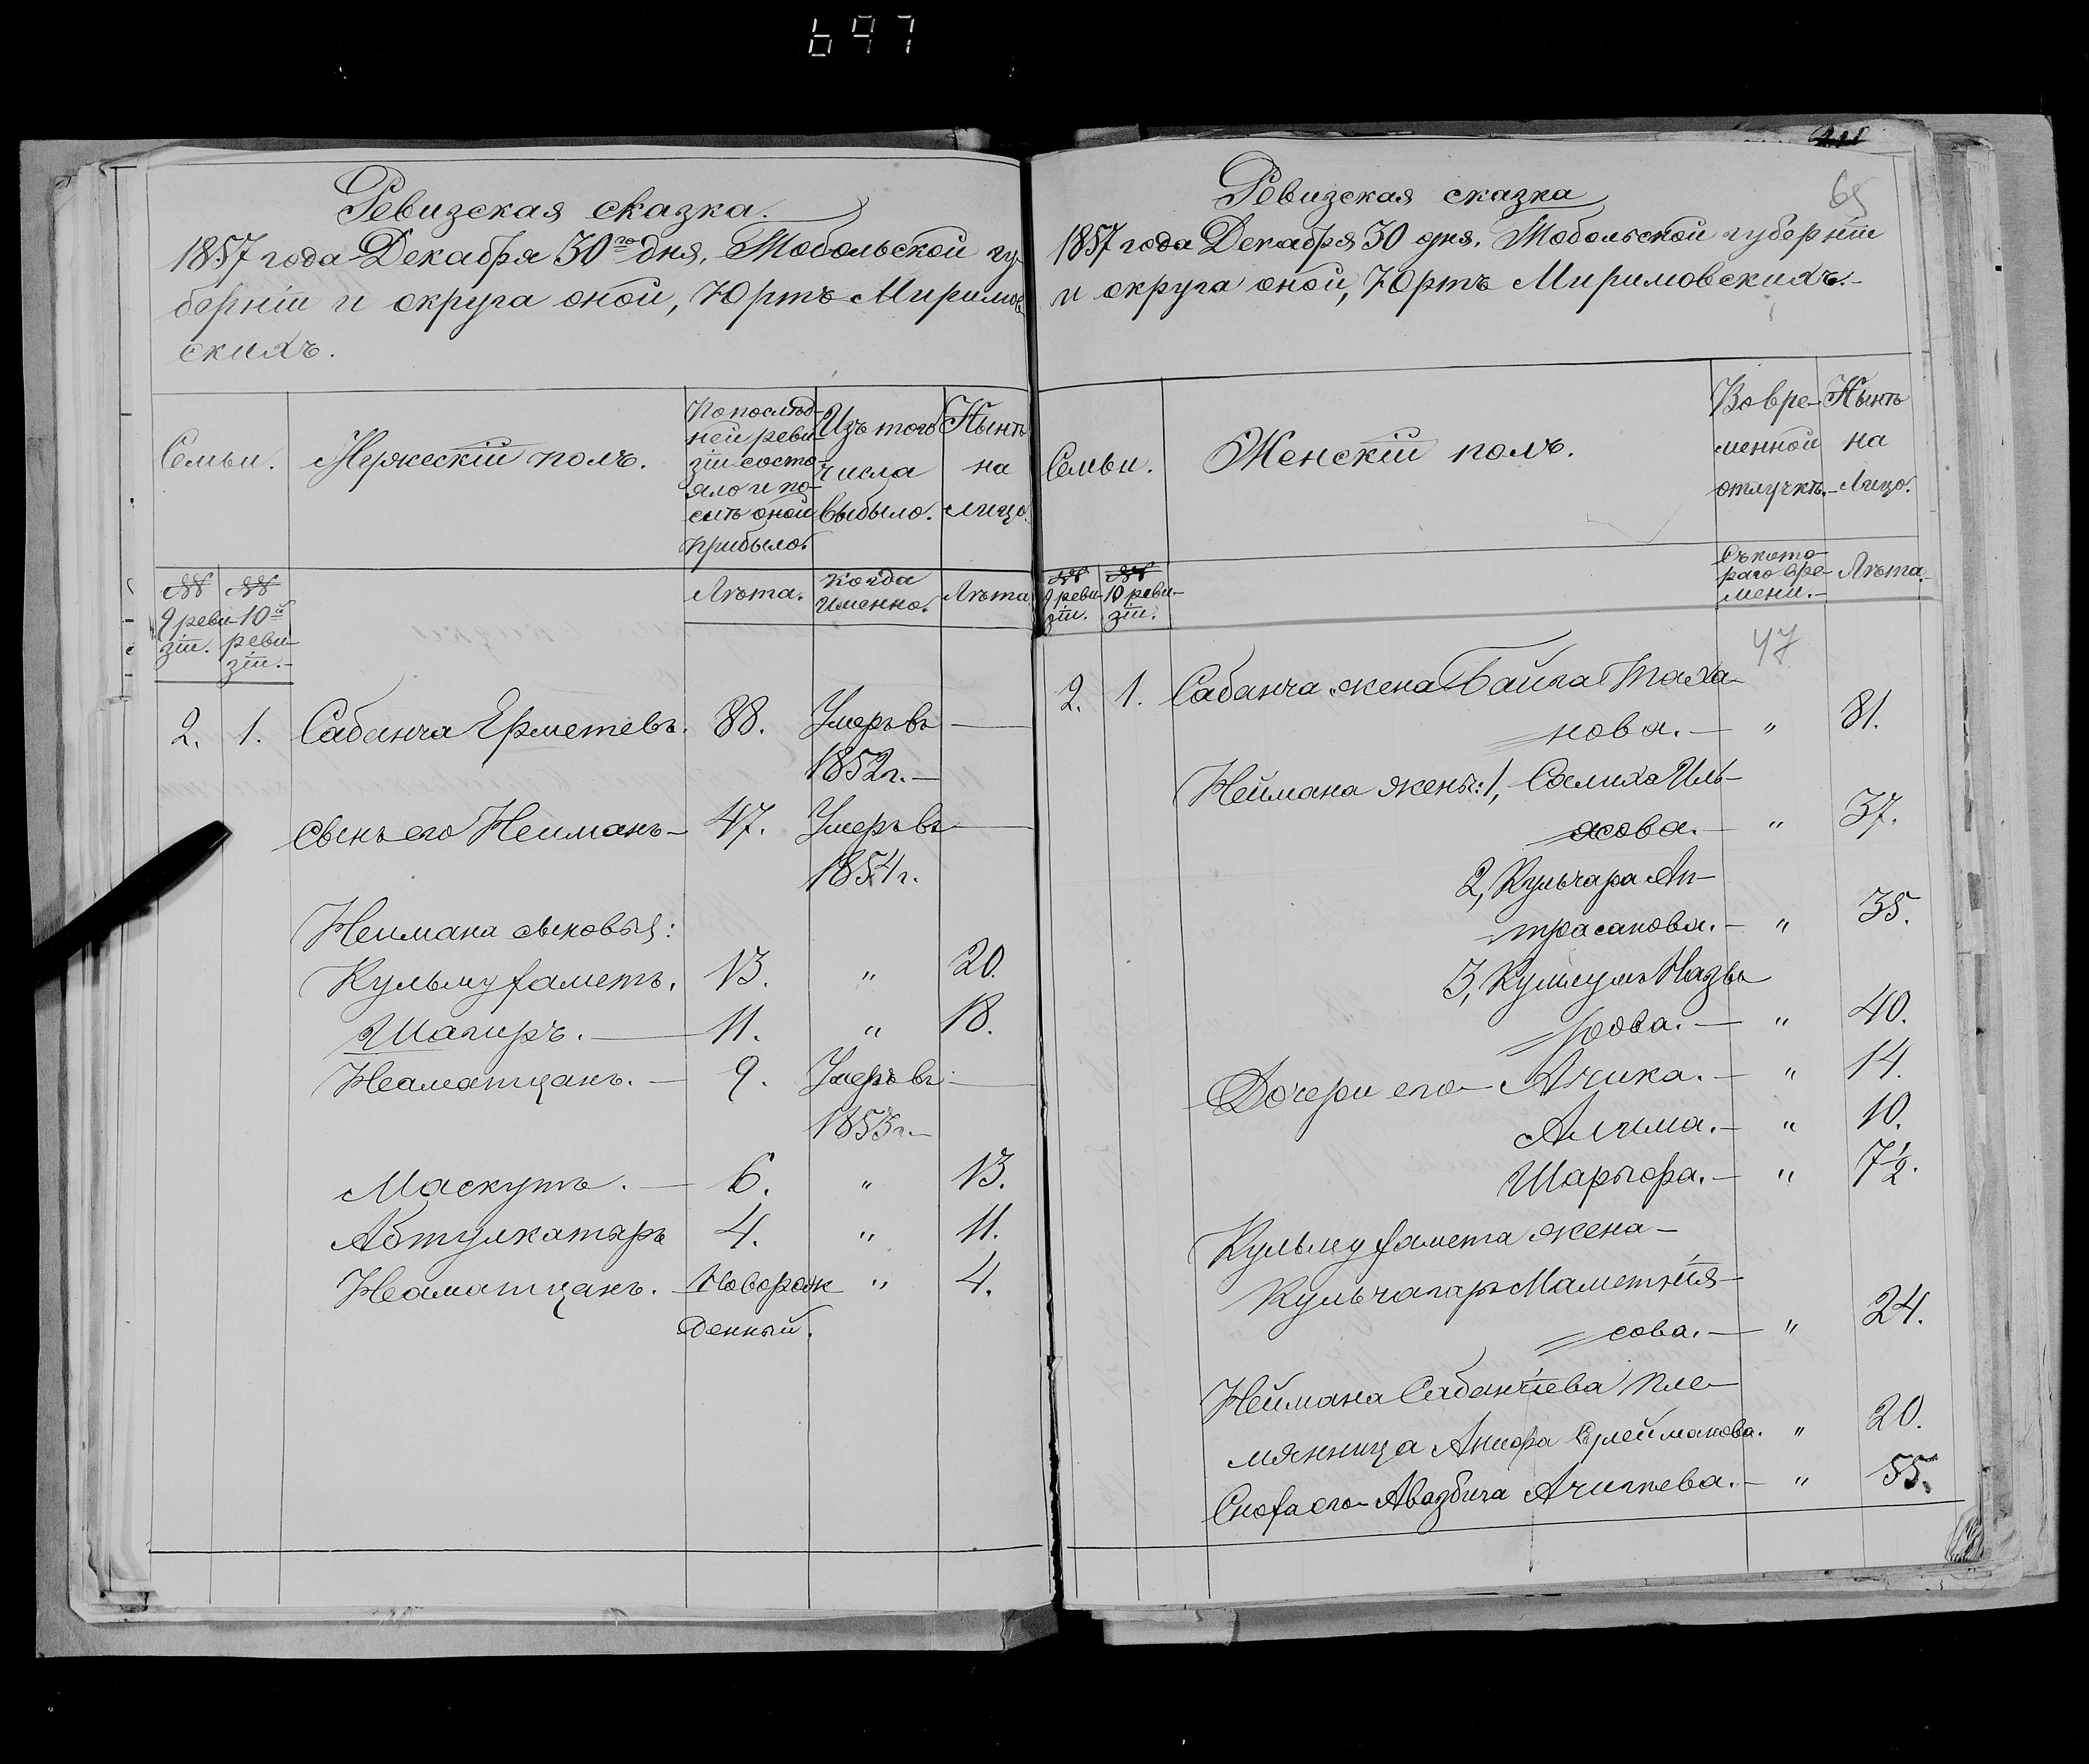 697
Ревизская сказка.
1857 года Декабря 30го дня, Тобольской гу
берніи и округа оной, Юртъ Миримов
скихъ.
Семьи.
Мужескій полъ.
По послѣд-
ней реви-
зіи состо-
яло и по-
слѣ оной
прибыло.
Изъ того
числа
выбыло.
Нынѣ
на
лицо.
№№
9 реви-
зіи.
№№
10й
реви-
зіи.-
Лѣта.
Когда
именно.
Лѣта
2. 1. Сабанча Ерметевъ. 88. Умеръ въ —
1852 г.-
сынъ его Нейманъ- 47. Умеръ въ —
1854 г.
Неймана сыновья:
Кульмухаметъ. 13. " 20.
Шагиръ. — 11. " 18.
Неаматцанъ. — 9. Умеръ въ —
1853 г.-
Маскутъ. — 6. " 13.
Абтулкатыръ 4. " 11.
Неаматцанъ. Новорож " 4.
денный.
Ревизская сказка
65
1857 года Декабря 30 дня. Тобольской губерніи
и округа оной, Юртъ Миримовскихъ.-
Семьи.
Женскій полъ.
Во вре-
менной
отлучкѣ.-
Нынѣ
на
Лицо.
№№
9 реви-
зіи.
№№
10 реви-
зіи.
Съ кото-
раго вре-
мени.-
Лѣта.
47
2. 1. Сабанча жена Байга Таха-
нова. — " 81.
Неймана жены: 1, Салиха Иль-
ясова. — " 37.
2, Кульчара Ап-
трасакова. — " 35.
3, Назы
рова. — " 40.
Дочери его — Ачика. — " 14.
Алчима. — " 10.
Шарыфа. — " 7½.
Кульмухамета жена —
Кульчагаръ Маметнія-
сова. — " 24.
Неймана Сабанчіева пле-
мянница Сулейманова. " 20.
Сноха его Авазбича — " 55.